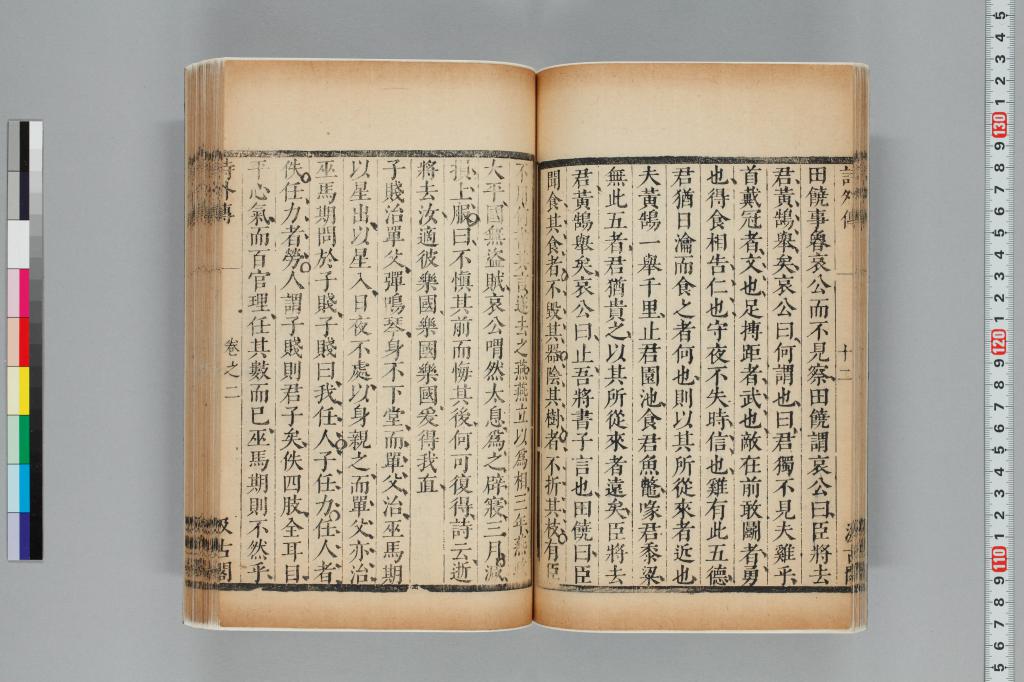 詩外傳 十二
田饒事魯哀公而不見察田饒謂哀公曰臣將去
君黃鵠舉矣哀公曰何謂也曰君獨不見夫雞乎
首戴冠者文也足搏距者武也敵在前敢鬭者勇
也得食相告仁也守夜不失時信也雞有此五德
君猶日瀹而食之者何也則以其所從來者近也
夫黃鵠一舉千里止君園池食君魚鱉喙君黍粱
無此五者君猶貴之以其所從來者遠矣臣將去
君黃鵠舉矣哀公曰止吾將書子言也田饒曰臣
聞食其食者不毀其器陰其樹者不折其枝有臣
不用何書其言遂去之燕燕立以爲相三年燕
大平國無盜賊哀公喟然太息爲之辟寢三月減
損上服曰不慎其前而悔其後何可復得詩云逝
將去汝適彼樂國樂國樂國爰得我直
子賤治單父彈鳴琴身不下堂而單父治巫馬期
以星出以星入日夜不處以身親之而單父亦治
巫馬期問於子賤子賤曰我任人子任力任人者
佚任力者勞人謂子賤則君子矣佚四肢全耳目
平心氣而百官理任其數而已巫馬期則不然乎
詩外傳 卷之二 汲古閣
5 4 3 2 1 130 9 8 7 6 5 4 3 2 1 120 9 8 7 6 5 4 3 2 1 110 9 8 7 6 5